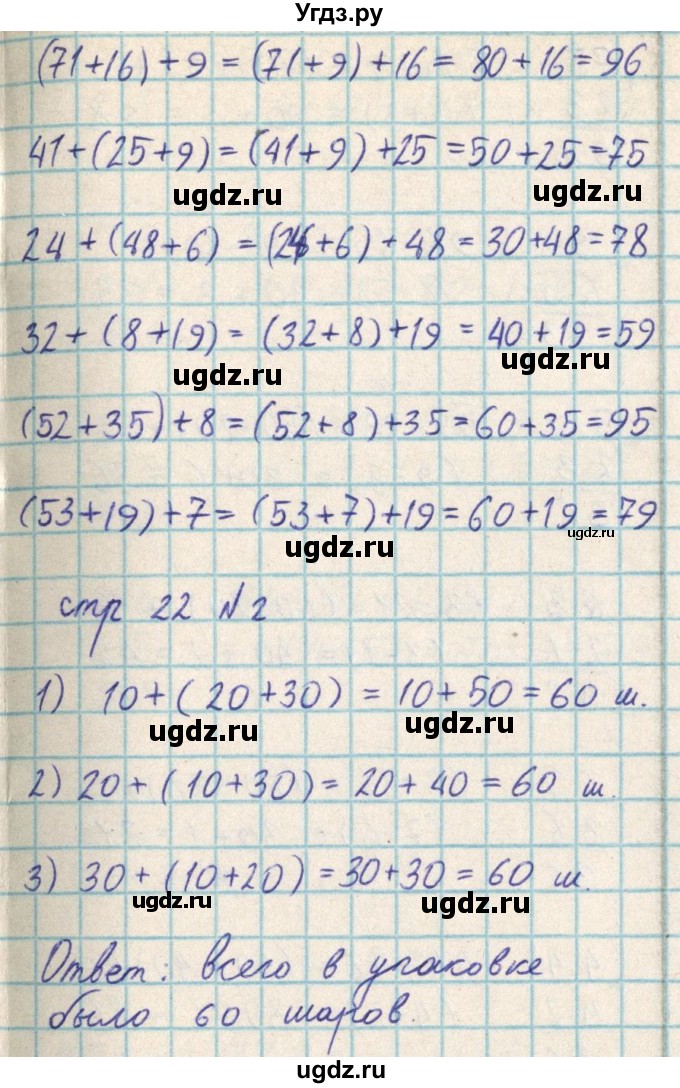 Угдз.ру
(71+16)+9 = (71+9)+16 = 80+16 = 96
41+(25+9) = (41+9)+25 = 50+25 = 75
ugdz.ru ugdz.ru
24+(48+6) = (24+6)+48 = 30+48 = 78
32+(8+19) = (32+8)+19 = 40+19 = 59
ugdz.ru ugdz.ru
(52+35)+8 = (52+8)+35 = 60+35 = 95
(53+19)+7 = (53+7)+19 = 60+19 = 79
ugdz.ru ugdz.ru
стр 22 №2
1) 10+(20+30) = 10+50 = 60 ш.
ugdz.ru ugdz.ru
2) 20+(10+30) = 20+40 = 60 ш.
3) 30+(10+20) = 30+30 = 60 ш.
ugdz.ru ugdz.ru
Ответ: всего в упаковке
было 60 шаров.
ugdz.ru